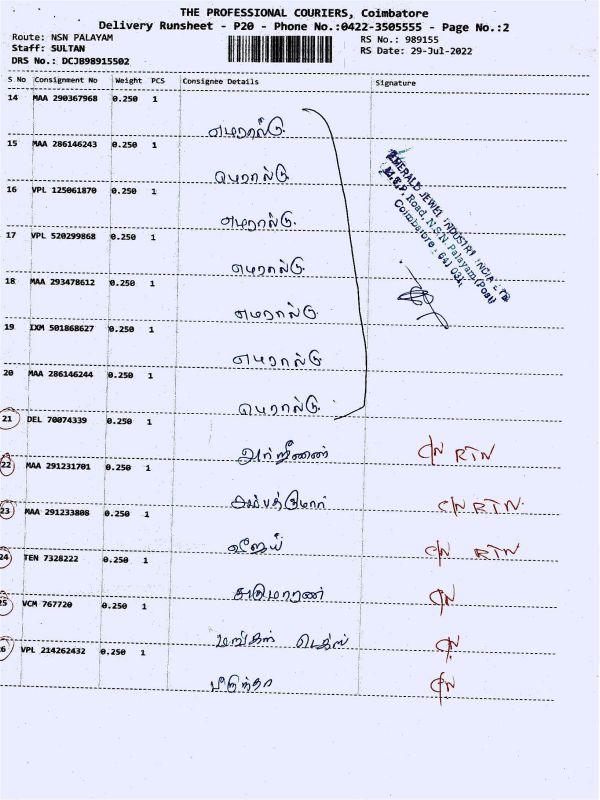 THE PROFESSIONAL COURIERS, Coimbatore
Delivery Runsheet - P20 - Phone No.:0422-3505555 - Page No.:2
Route: NSN PALAYAM
RS No.: 989155
Staff: SULTAN
RS Date: 29-Jul-2022
DRS No.: DCJB98915502
S No Consignment No Weight PCS Consignee Details Signature
14 MAA 290367968 0.250 1
எமரால்டு
15 MAA 286146243 0.250 1
எமரால்டு
16 VPL 125061870 0.250 1
எமரால்டு
17 VPL 520299868 0.250 1
எமரால்டு
18 MAA 293478612 0.250 1
எமரால்டு
19 IXM 501868627 0.250 1
எமரால்டு
20 MAA 286146244 0.250 1
எமரால்டு
EMERALD JEWEL INDUSTRY INDIA LTD
M.T.P. Road, N.S.N. Palayam (Post)
Coimbatore - 641 031
21 DEL 70074339 0.250 1
C/N RTN
22 MAA 291231701 0.250 1
சம்பத்குமார் C/N RTN
23 MAA 291233808 0.250 1
விஜய் C/N RTN
24 TEN 7328222 0.250 1
சுகுமாரன் C/N
25 VCM 767720 0.250 1
C/N
26 VPL 214262432 0.250 1
பிருந்தா C/N